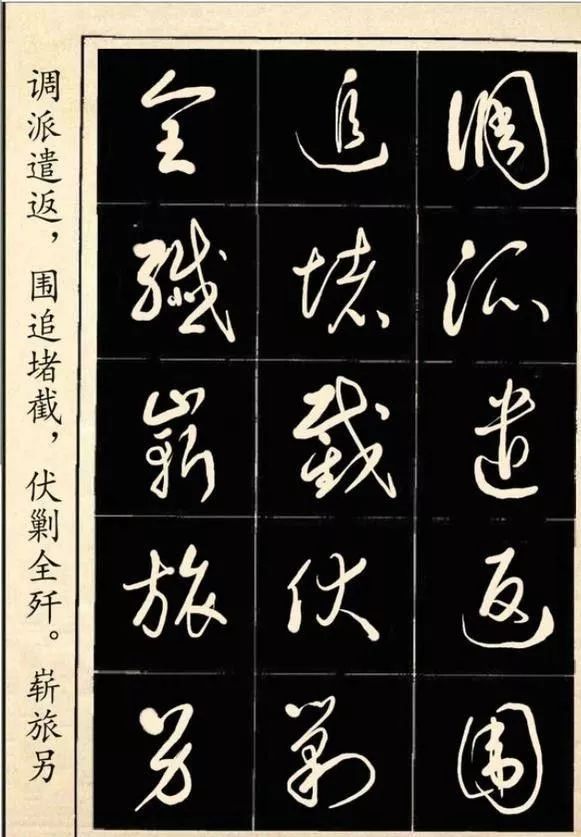 调派遣返，围追堵截，伏剿全歼。崭旅另
调派遣返围
追堵截伏剿
全歼崭旅另